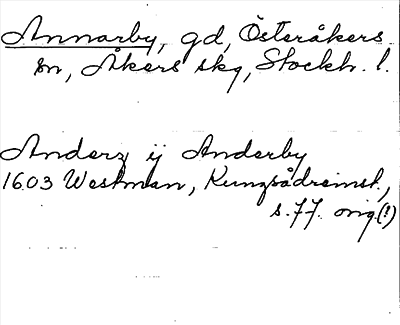 Annarby, gd, Österåkers
sn, Åkers skg, Stockh. l.
Anderz ij Anderby
1603 Westman, Kungsådreinst.,
s. 77. orig.(!)